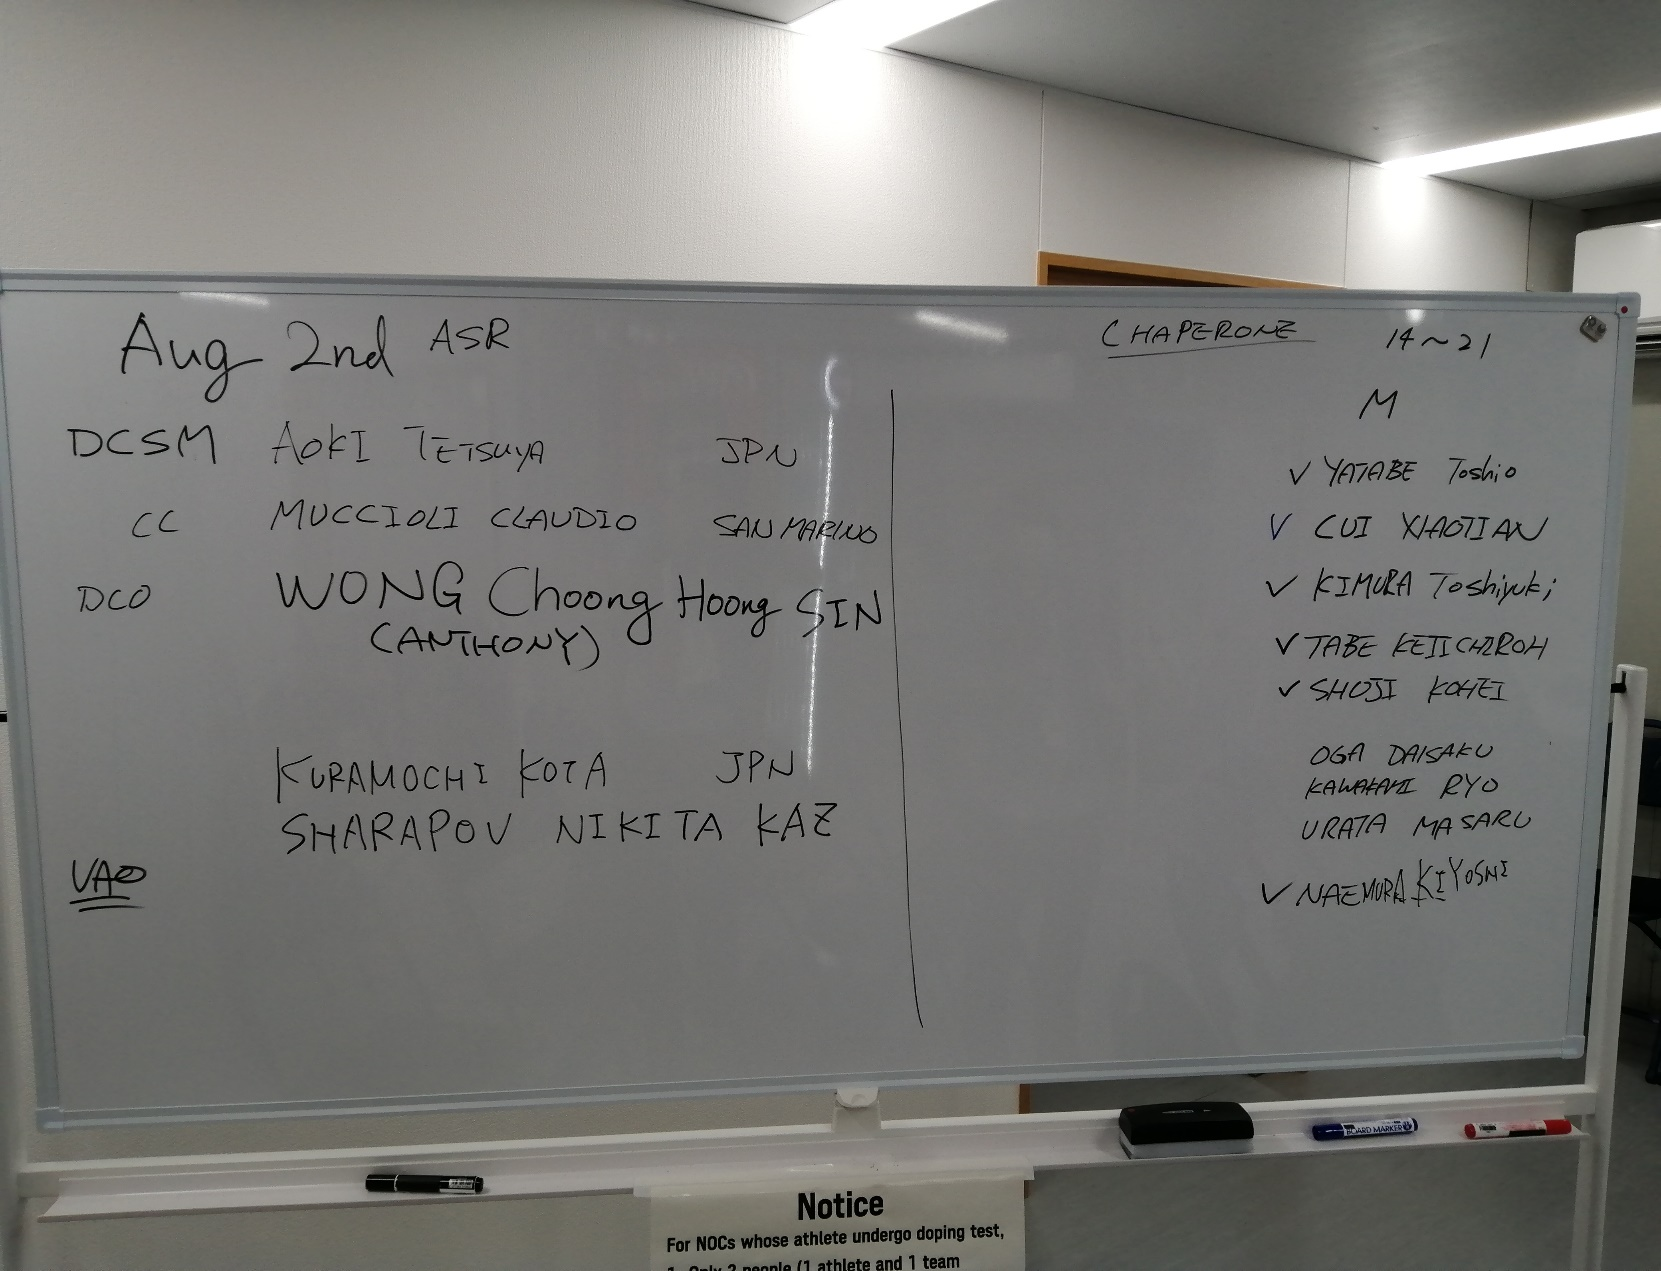 Aug 2nd ASR
DCSM AOKI TETSUYA JPN
CC MUCCIOLI CLAUDIO SAN MARINO
DCO WONG Choong Hoong SIN
(ANTHONY)
KURAMOCHI KOTA JPN
SHARAPOV NIKITA KAZ
VAO
CHAPERONE 14~21
M
✓ YATABE Toshio
✓ CUI XIAOTIAN
✓ KIMURA Toshiyuki
✓ TABE KEIICHIROH
✓ SHOJI KOHEI
OGA DAISAKU
KAWAKAMI RYO
URATA MASARU
✓ NAEMURA KIYOSHI
BOARD MARKER
Notice
For NOCs whose athlete undergo doping test,
1. Only 2 people (1 athlete and 1 team